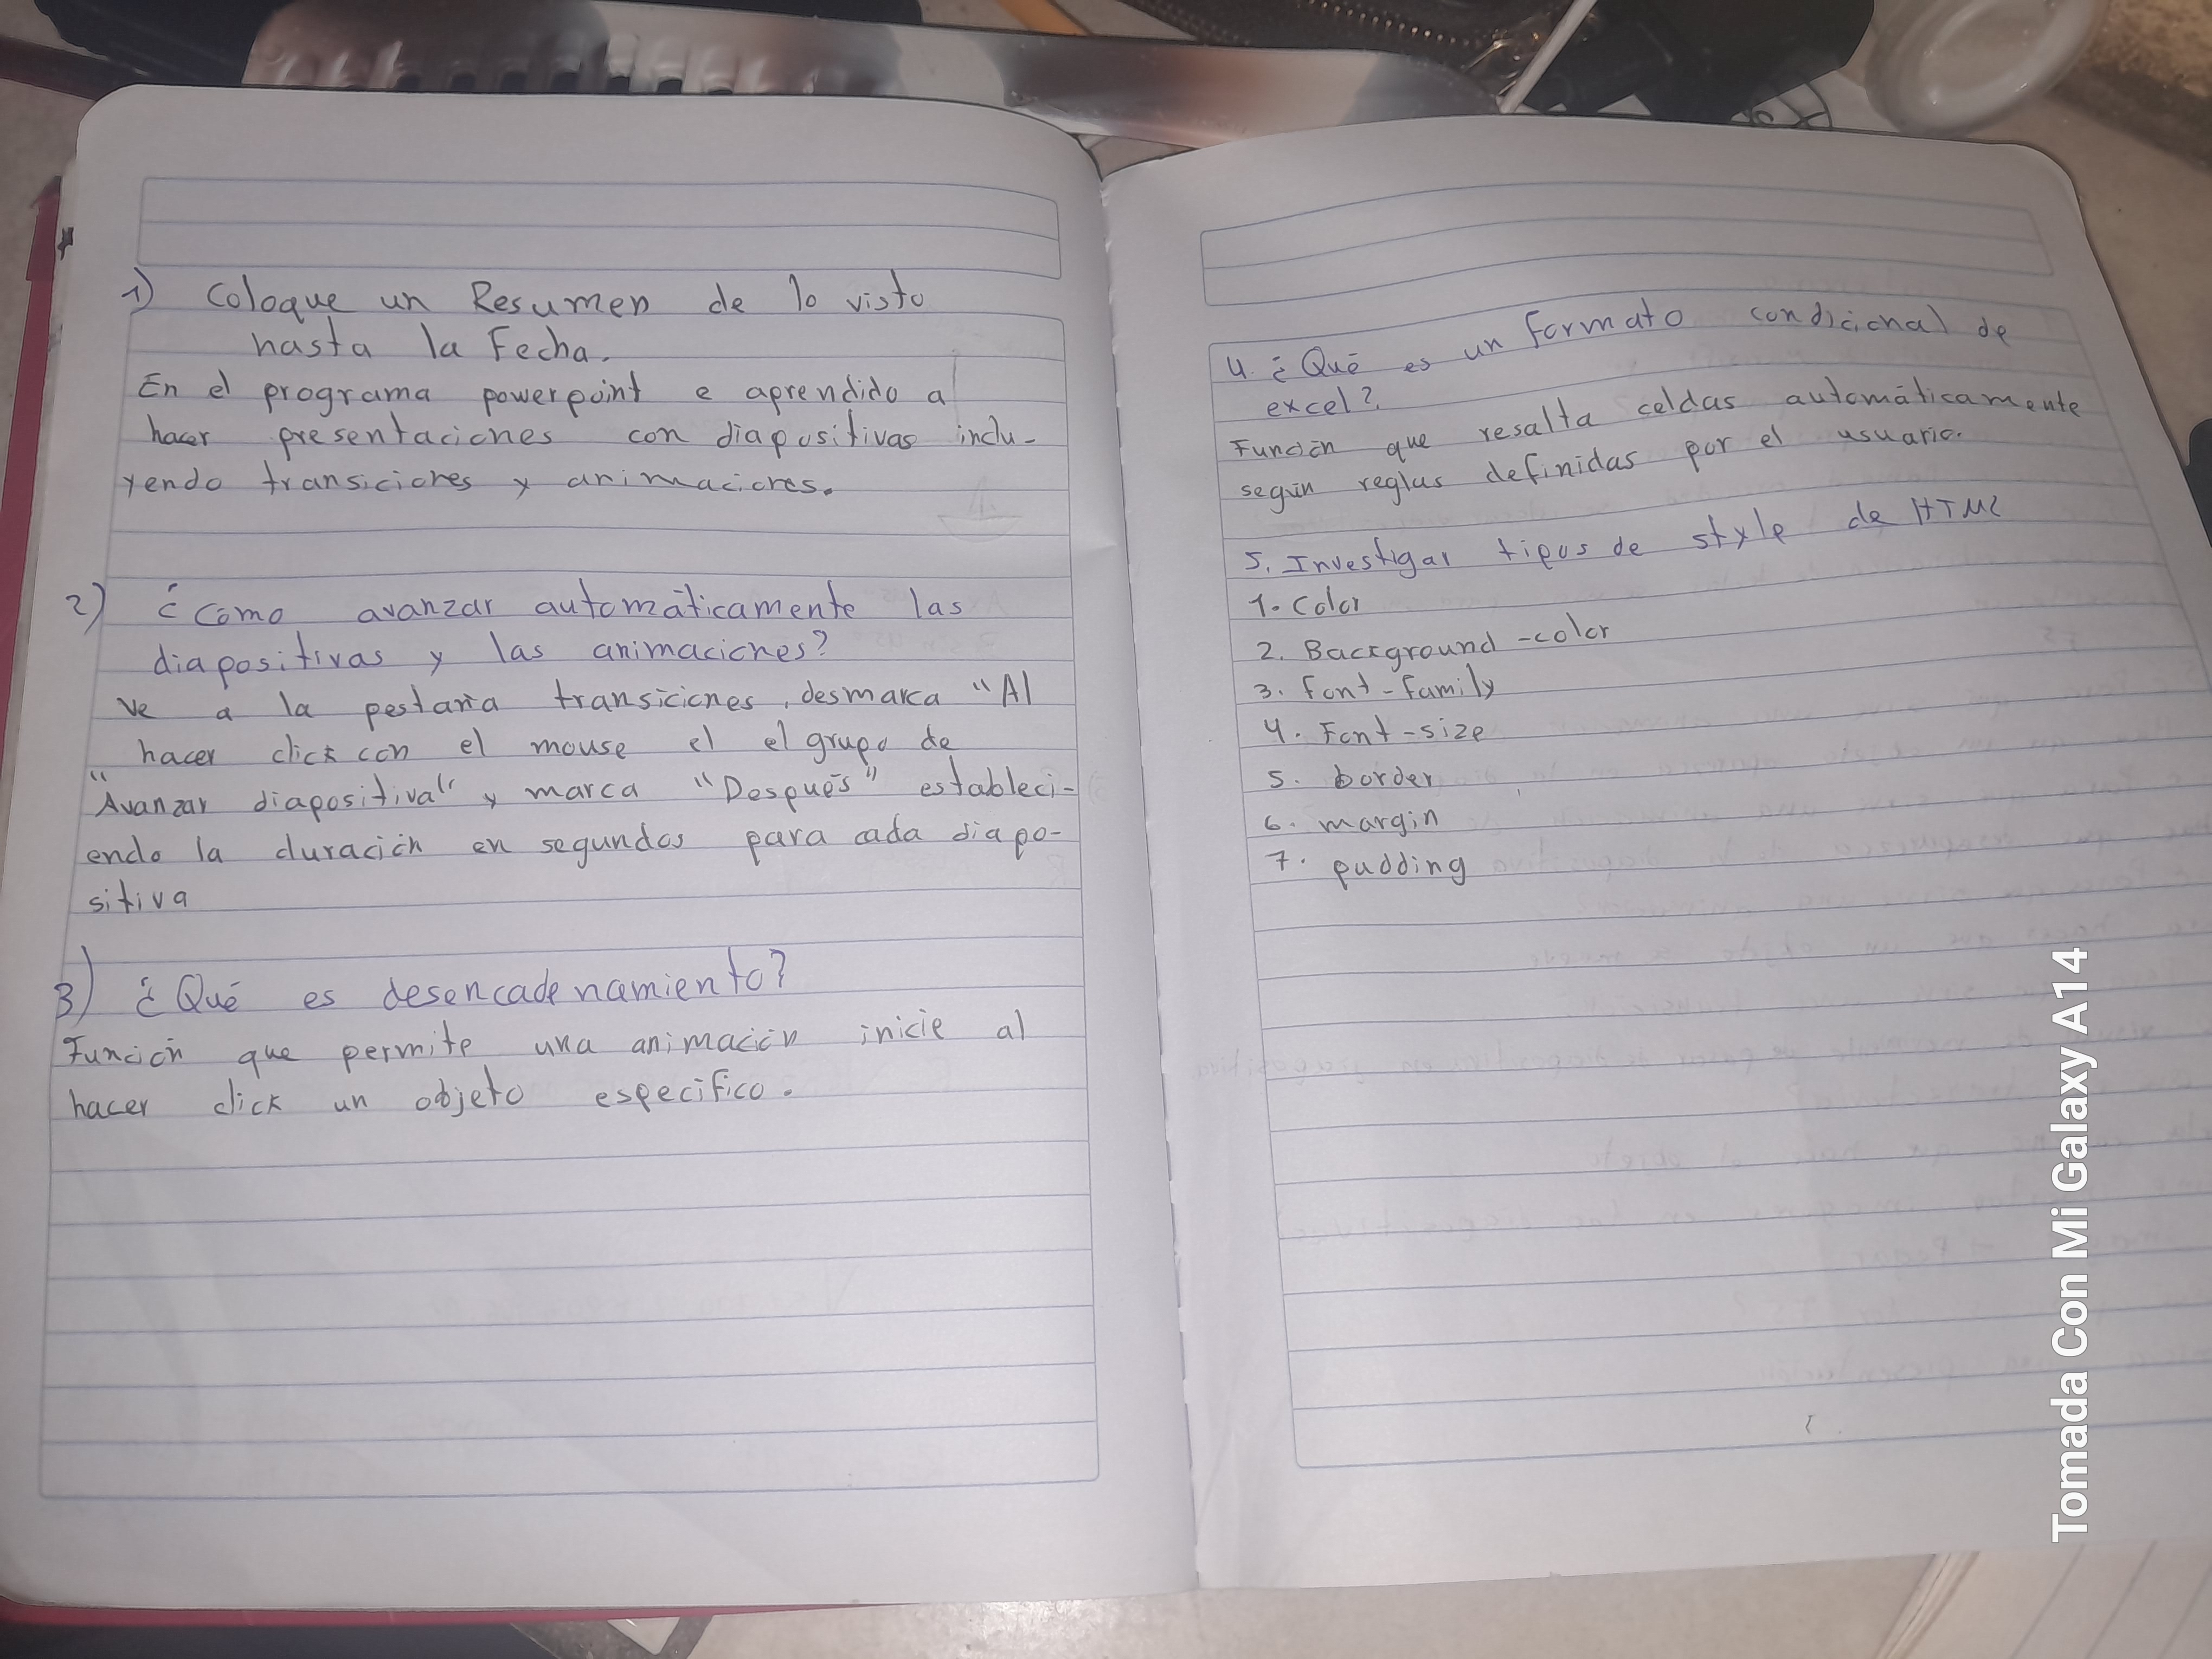 1) Coloque un Resumen de lo visto
hasta la Fecha.
En el programa powerpoint e aprendido a
hacer presentaciones con diapositivas inclu-
yendo transiciones y animaciones.
2) ¿Cómo avanzar automáticamente las
diapositivas y las animaciones?
Ve a la pestaña transiciones, desmarca "Al
hacer click con el mouse el el grupo de
"Avanzar diapositiva" y marca "Después" estableci-
endo la duración en segundos para cada diapo-
sitiva
3) ¿Qué es desencadenamiento?
Función que permite una animación inicie al
hacer click un objeto especifico.
4. ¿Qué es un formato condicional de
excel?.
Función que resalta celdas automáticamente
según reglas definidas por el usuario.
5. Investigar tipos de style de HTML
1. Color
2. Background-color
3. font-family
4. Font-size
5. border
6. margin
7. padding
Tomada Con Mi Galaxy A14